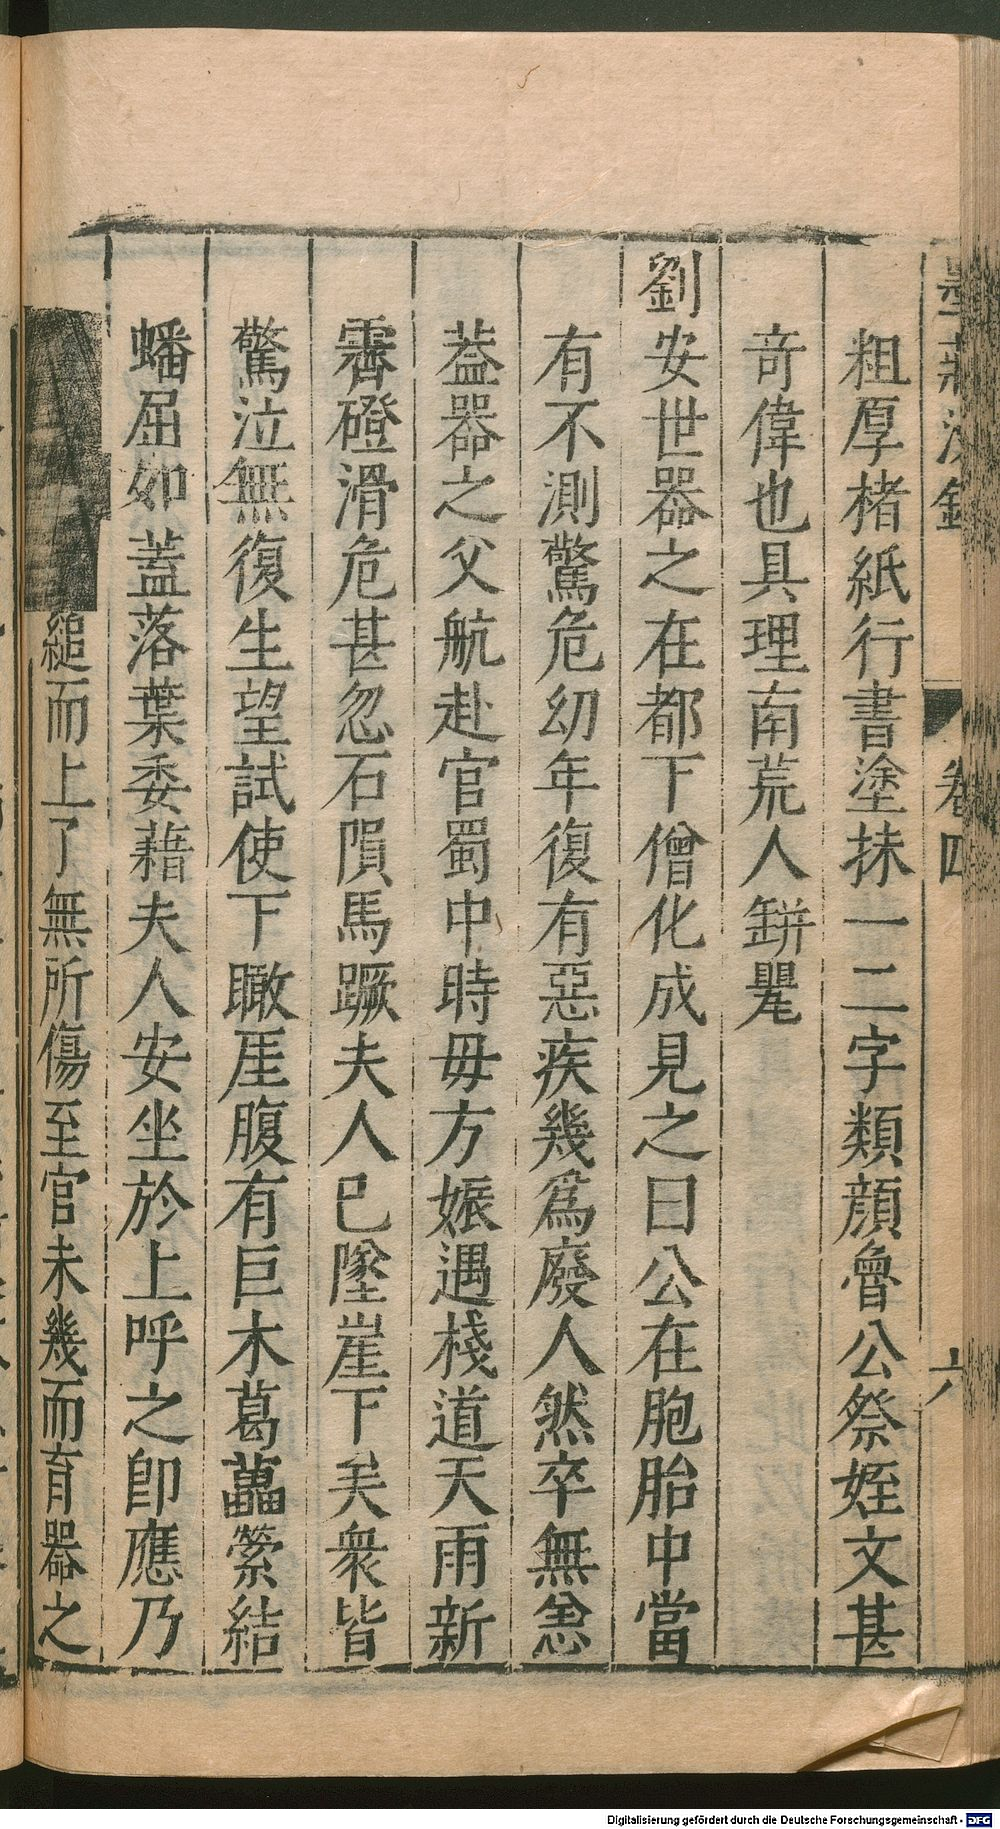 墨莊漫錄　卷四　六
粗厚楮紙行書塗抹一二字類顔魯公祭姪文甚
竒偉也具理南荒人缾罌
劉安世器之在都下僧化成見之曰公在胞胎中當
有不測驚危幼年復有惡疾幾爲廢人然卒無恙
葢器之父航赴官蜀中時毋方娠遇棧道天雨新
霽磴滑危甚忽石隕馬蹶夫人已墜崖下矣衆皆
驚泣無復生望試使下瞰厓腹有巨木葛藟縈結
蟠屈如蓋落葉委藉夫人安坐於上呼之卽應乃
縋而上了無所傷至官未幾而育器之
Digitalisierung gefördert durch die Deutsche Forschungsgemeinschaft - DFG